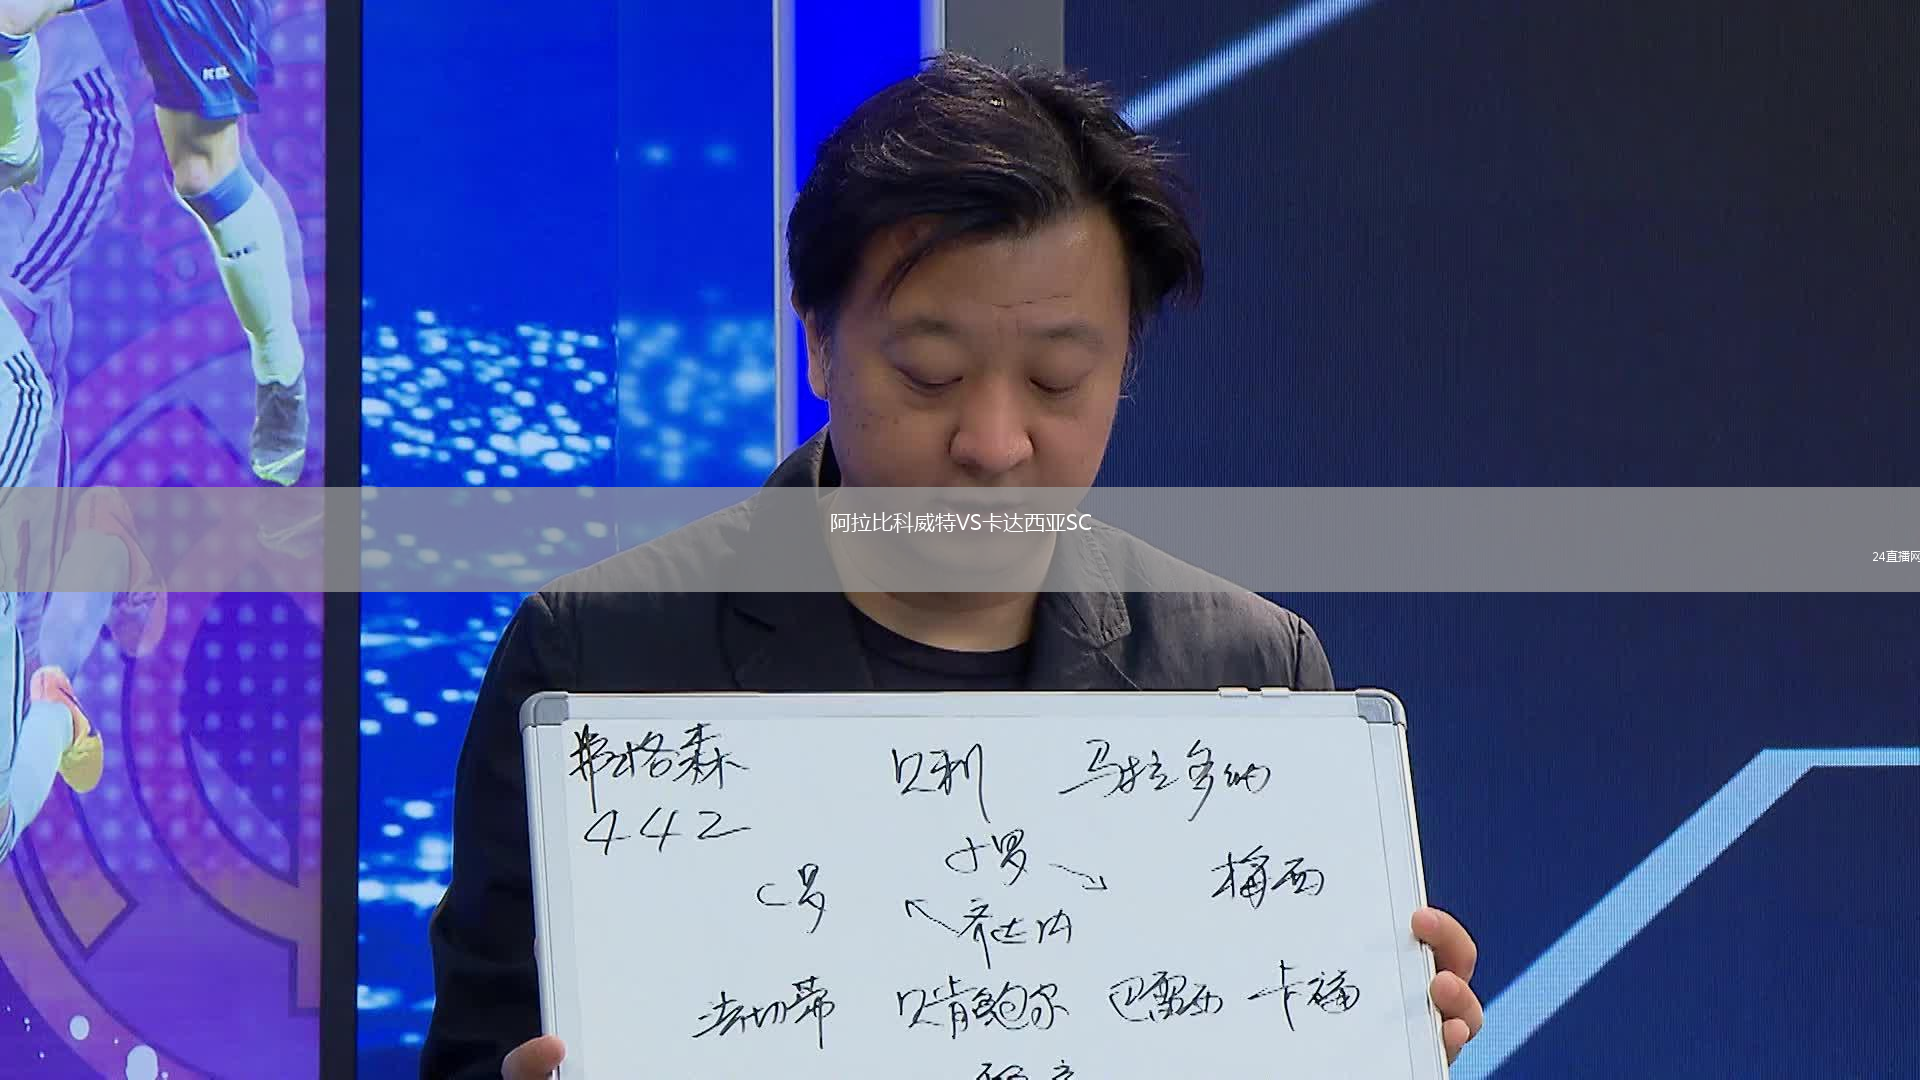 KEL
阿拉比科威特VS卡达西亚SC
24直播网
弗格森 贝利 马拉多纳
442
小罗
C罗 梅西
齐达内
法切蒂 贝肯鲍尔 巴雷西 卡福